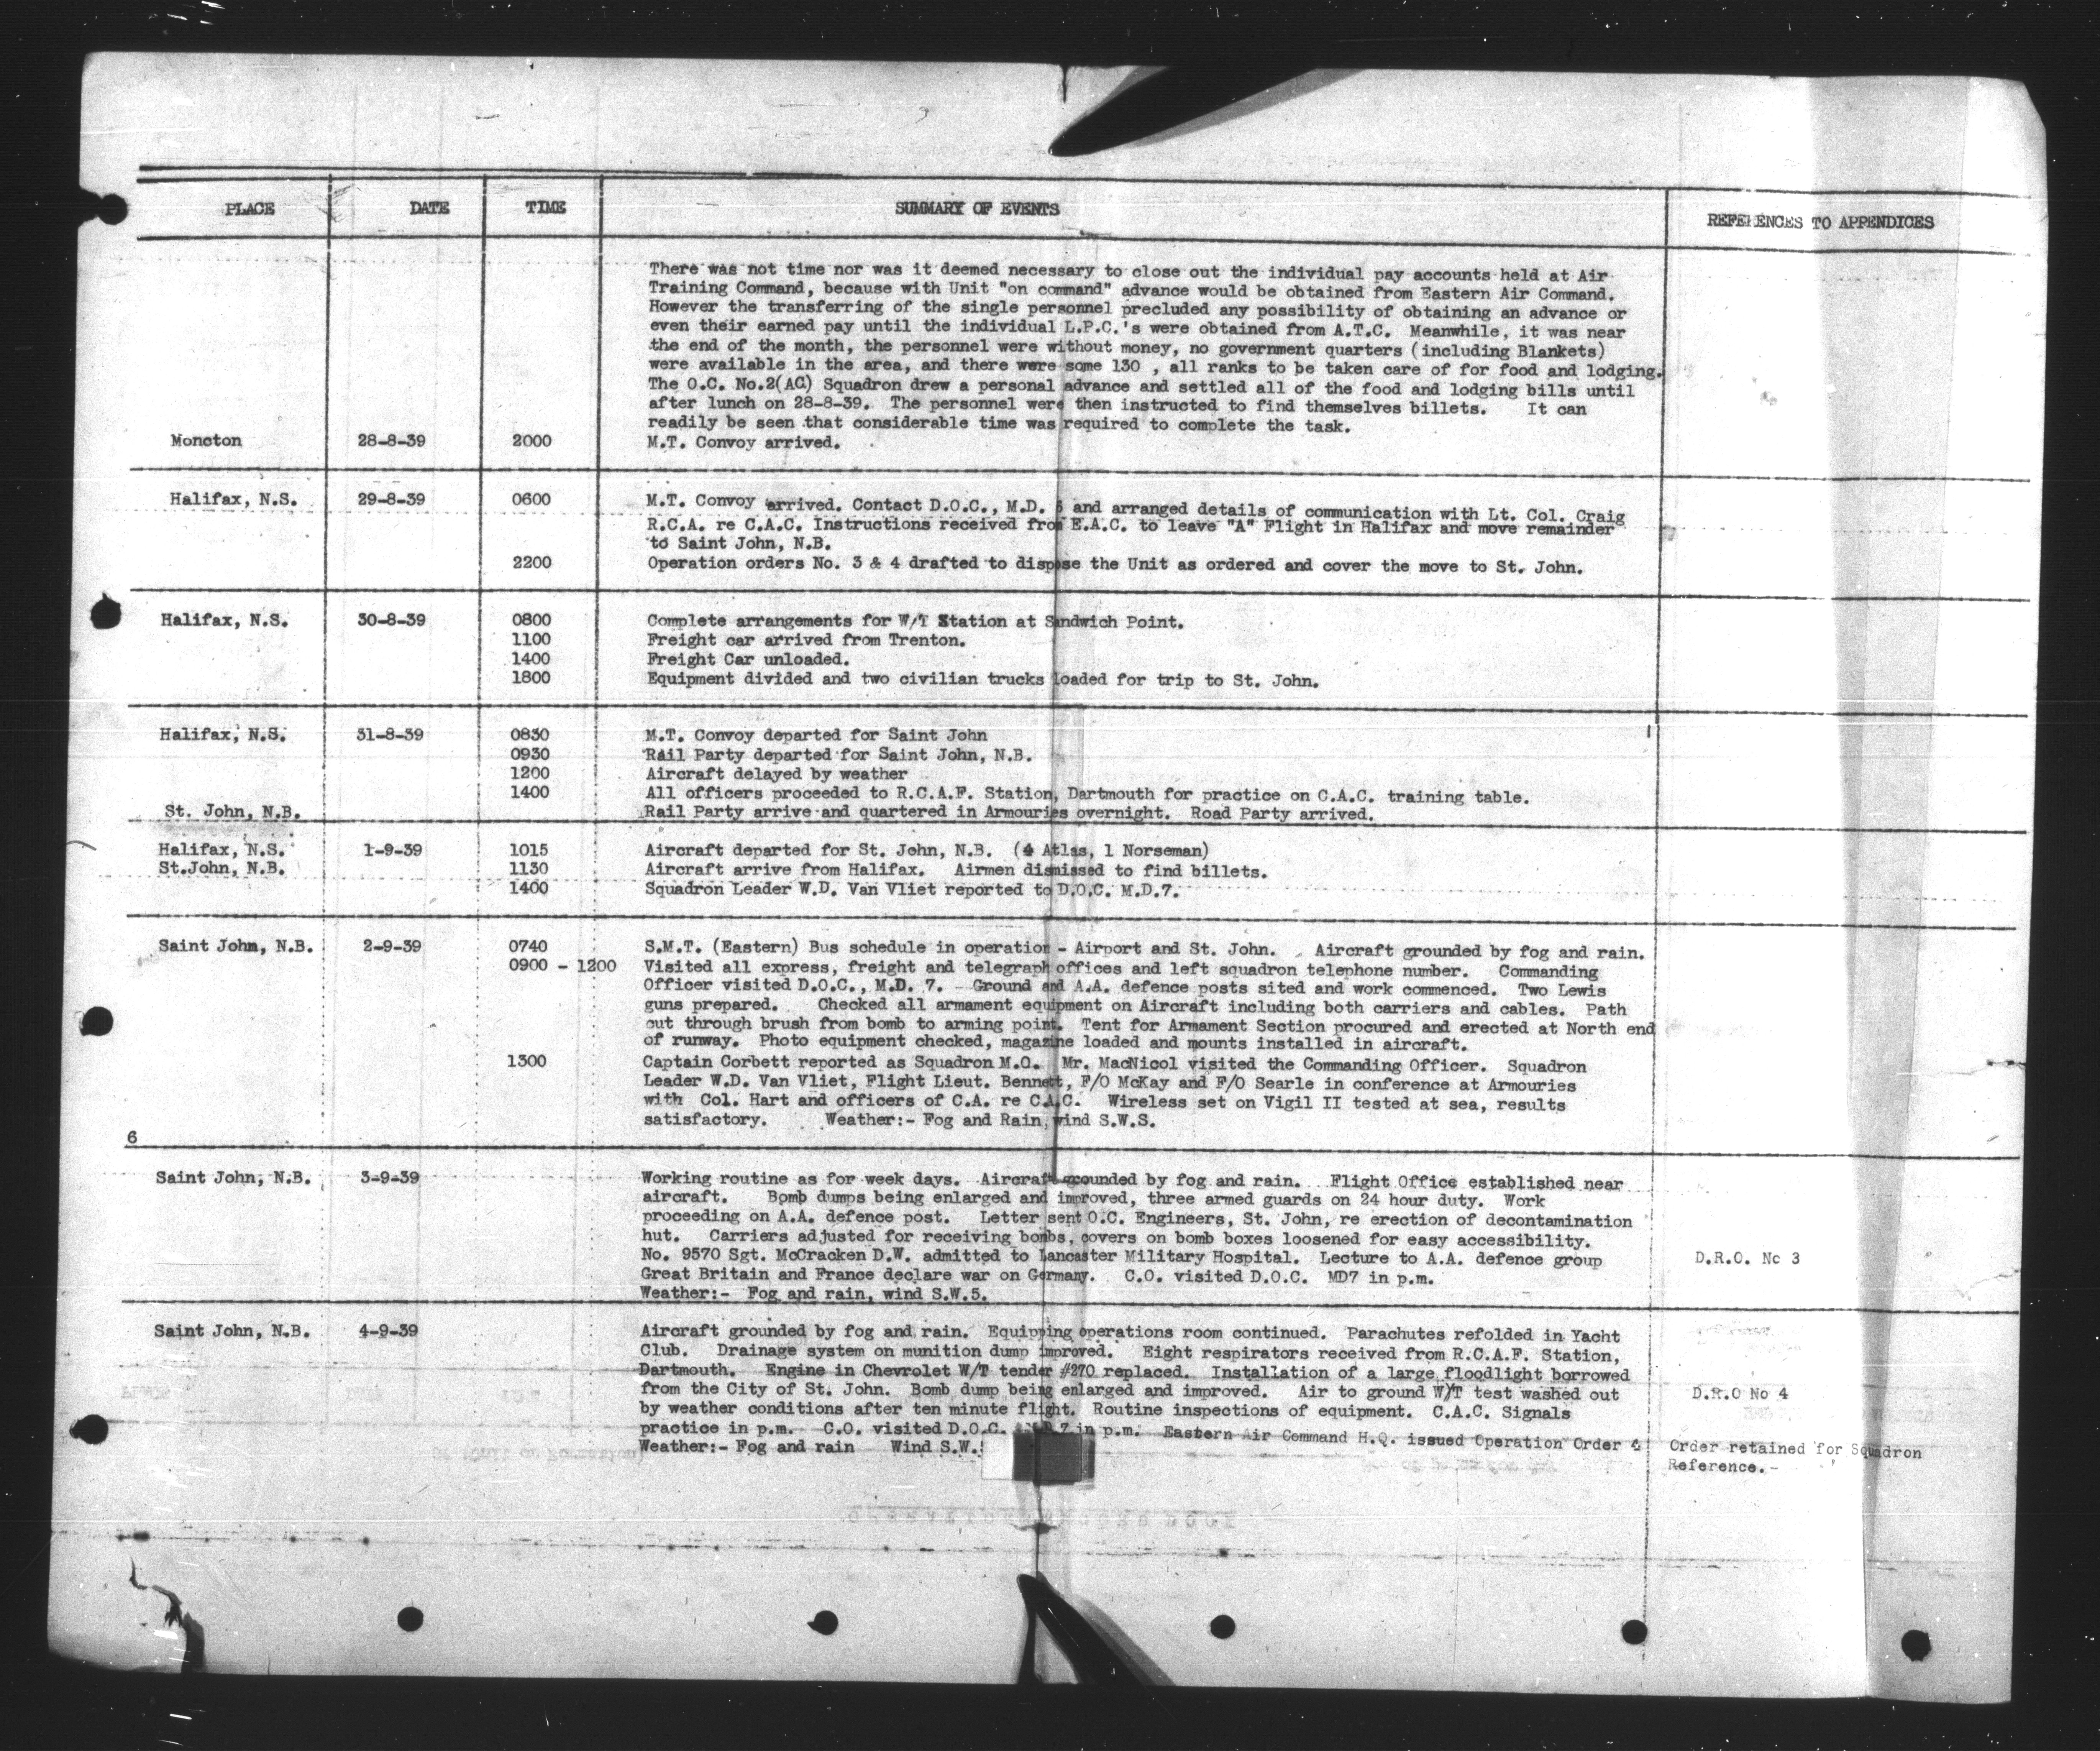 PLACE DATE TIME SUMMARY OF EVENTS REFERENCES TO APPENDICES
There was not time nor was it deemed necessary to close out the individual pay accounts held at Air
Training Command, because with Unit "on command" advance would be obtained from Eastern Air Command.
However the transferring of the single personnel precluded any possibility of obtaining an advance or
even their earned pay until the individual L.P.C.'s were obtained from A.T.C. Meanwhile, it was near
the end of the month, the personnel were without money, no government quarters (including Blankets)
were available in the area, and there were some 130 , all ranks to be taken care of for food and lodging.
The O.C. No.2(AC) Squadron drew a personal advance and settled all of the food and lodging bills until
after lunch on 28-8-39. The personnel were then instructed to find themselves billets. It can
readily be seen that considerable time was required to complete the task.
Moncton 28-8-39 2000 M.T. Convoy arrived.
Halifax, N.S. 29-8-39 0600 M.T. Convoy arrived. Contact D.O.C., M.D. 6 and arranged details of communication with Lt. Col. Craig
R.C.A. re C.A.C. Instructions received from E.A.C. to leave "A" Flight in Halifax and move remainder
to Saint John, N.B.
2200 Operation orders No. 3 & 4 drafted to dispose the Unit as ordered and cover the move to St. John.
Halifax, N.S. 30-8-39 0800 Complete arrangements for W/T Station at Sandwich Point.
1100 Freight car arrived from Trenton.
1400 Freight Car unloaded.
1800 Equipment divided and two civilian trucks loaded for trip to St. John.
Halifax, N.S. 31-8-39 0830 M.T. Convoy departed for Saint John
0930 Rail Party departed for Saint John, N.B.
1200 Aircraft delayed by weather
1400 All officers proceeded to R.C.A.F. Station, Dartmouth for practice on C.A.C. training table.
St. John, N.B. Rail Party arrive and quartered in Armouries overnight. Road Party arrived.
Halifax, N.S. 1-9-39 1015 Aircraft departed for St. John, N.B. (4 Atlas, 1 Norseman)
St.John, N.B. 1130 Aircraft arrive from Halifax. Airmen dismissed to find billets.
1400 Squadron Leader W.D. Van Vliet reported to D.O.C. M.D.7.
Saint John, N.B. 2-9-39 0740 S.M.T. (Eastern) Bus schedule in operation - Airport and St. John. Aircraft grounded by fog and rain.
0900 - 1200 Visited all express, freight and telegraph offices and left squadron telephone number. Commanding
Officer visited D.O.C., M.D. 7. Ground and A.A. defence posts sited and work commenced. Two Lewis
guns prepared. Checked all armament equipment on Aircraft including both carriers and cables. Path
cut through brush from bomb to arming point. Tent for Armament Section procured and erected at North end
of runway. Photo equipment checked, magazine loaded and mounts installed in aircraft.
1300 Captain Corbett reported as Squadron M.O. Mr. MacNicol visited the Commanding Officer. Squadron
Leader W.D. Van Vliet, Flight Lieut. Bennett, F/O McKay and F/O Searle in conference at Armouries
with Col. Hart and officers of C.A. re C.A.C. Wireless set on Vigil II tested at sea, results
satisfactory. Weather:- Fog and Rain, wind S.W.S.
6
Saint John, N.B. 3-9-39 Working routine as for week days. Aircraft grounded by fog and rain. Flight Office established near
aircraft. Bomb dumps being enlarged and improved, three armed guards on 24 hour duty. Work
proceeding on A.A. defence post. Letter sent O.C. Engineers, St. John, re erection of decontamination
hut. Carriers adjusted for receiving bombs, covers on bomb boxes loosened for easy accessibility.
No. 9570 Sgt. McCracken D.W. admitted to Lancaster Military Hospital. Lecture to A.A. defence group D.R.O. No 3
Great Britain and France declare war on Germany. C.O. visited D.O.C. MD7 in p.m.
Weather:- Fog and rain, wind S.W.5.
Saint John, N.B. 4-9-39 Aircraft grounded by fog and rain. Equipping operations room continued. Parachutes refolded in Yacht
Club. Drainage system on munition dump improved. Eight respirators received from R.C.A.F. Station,
Dartmouth. Engine in Chevrolet W/T tender #270 replaced. Installation of a large floodlight borrowed
from the City of St. John. Bomb dump being enlarged and improved. Air to ground W/T test washed out D.R.O No 4
by weather conditions after ten minute flight. Routine inspections of equipment. C.A.C. Signals
practice in p.m. C.O. visited D.O.C. 7 in p.m. Eastern Air Command H.Q. issued Operation Order 4 Order retained for Squadron
Weather:- Fog and rain Wind S.W. Reference.-